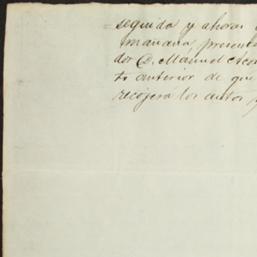 seguida y ahoras
mañana, present
dor D. Manuel
to anterior de que
recojera los autos y